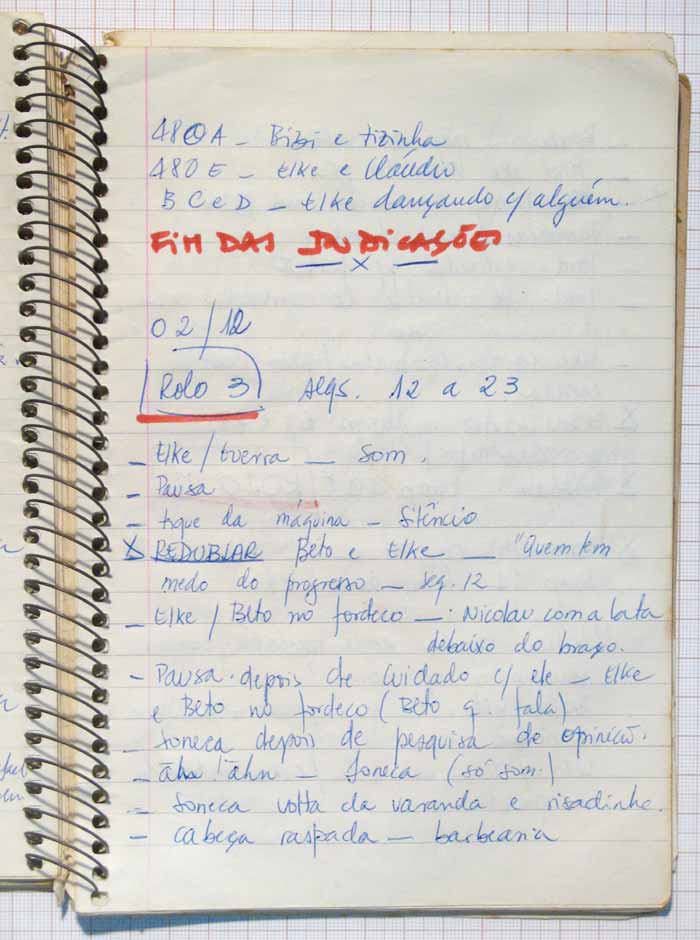 480A - Bibi e tizinha
480E - Elke e Cláudio
B C e D - Elke dançando c/ alguém.
FIM DAS INDICAÇÕES
x
02/12
Rolo 3 seqs. 12 a 23
- Elke / - Som.
- Pausa
- tique da máquina - Silêncio
X REDUBLAR Beto e Elke - "Quem tem
medo do progresso - seq. 12
- Elke / Beto no fordeco - : Nicolau com a lata
debaixo do braço.
- Pausa. depois de cuidado c/ ele - Elke
e Beto no fordeco (Beto q. fala)
- Soneca depois de pesquisa de opinião.
- ãhn! ãhn - Soneca (só som.)
- Soneca volta da varanda e risadinha.
- cabeça raspada - barbearia